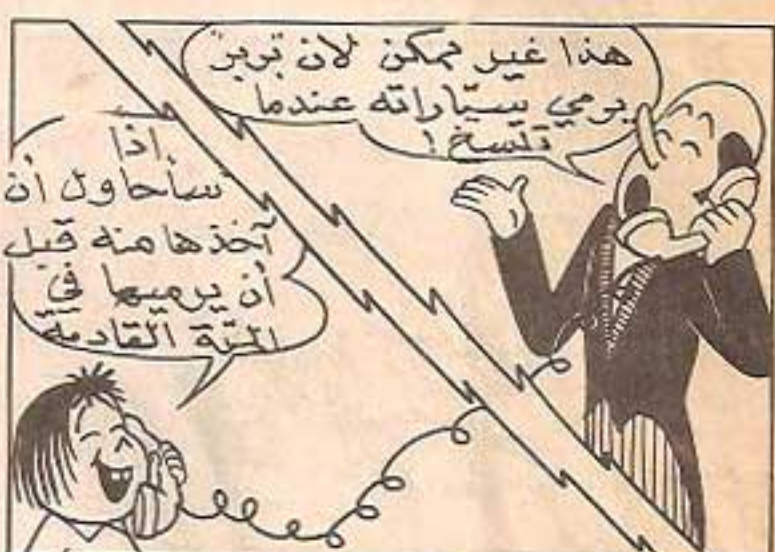 هذا غير ممكن لأن بربر
يرمي سيّاراته عندما
تتسخ!
إذا
سأحاول أن
آخذها منه قبل
أن يرميها في
المرّة القادمة